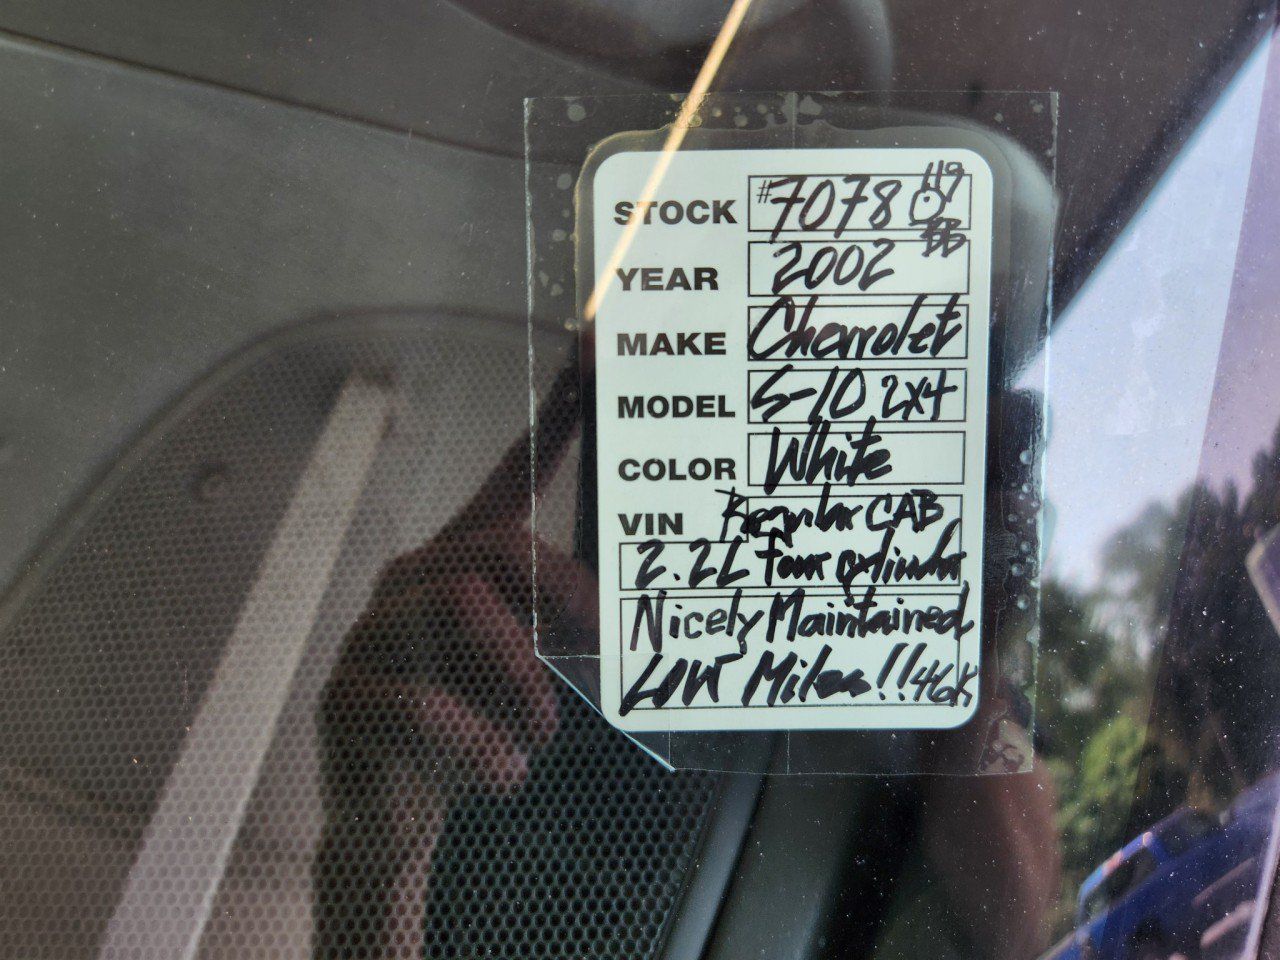 STOCK #7078 119
YEAR 2002 BB
MAKE Chevrolet
MODEL S-10 2x4
COLOR White
VIN Regular CAB
2.2L Four cylinder
Nicely Maintained
Low Miles!! 46K